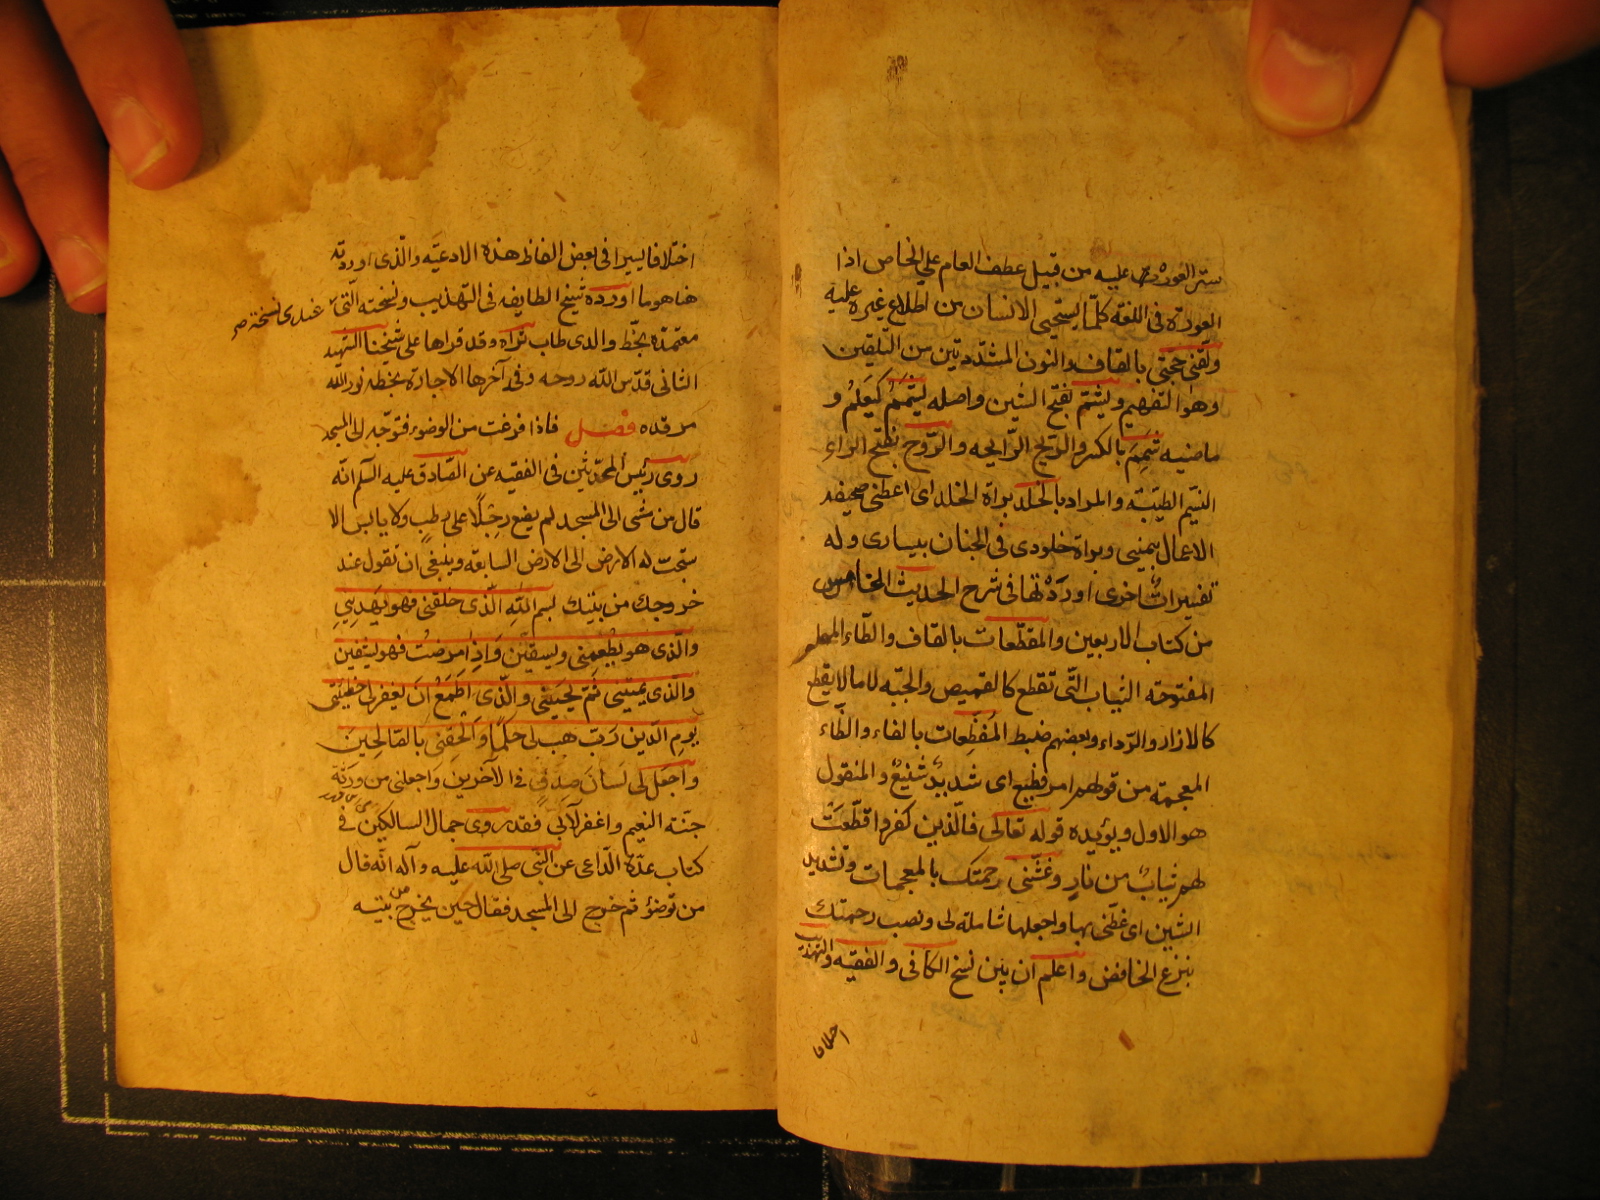 ستر العورة عليه من قبيل عطف العام على الخاص اذا
العورة فى اللغة كلما يستحيى الانسان من اطلاع غيره عليه
ولقنى حجتى بالقاف والنون المشددتين من التلقين
وهو التفهيم ويشتم بفتح الشين واصله يشتمم كيعلم و
ماضيه شمم بالكسر والريح الرايحه والروح بفتح الراء
النسيم الطيبة والمراد بالخلد براة الخلد اى اعطنى صحيفه
الاعمال بيمنى وبراة خلودى فى الجنان بيسارى وله
تفسيرات اخرى اوردناها فى شرح الحديث الخامس
من كتاب الاربعين والمقطعات بالقاف والطاء المهملة
المفتوحة الثياب التى تقطع كالقميص والجبه لا ما لا يقطع
كالازار والرداء وبعضهم ضبط المفظعات بالفاء والظاء
المعجمة من قولهم امر فظيع اى شديد شنيع والمنقول
هو الاول ويؤيده قوله تعالى فالذين كفروا قطعت
لهم ثياب من نار وغشنى رحمتك بالمعجمات وتشديد
الشين اى غطنى بها واجعلها شاملة لى ونصب رحمتك
بنزع الخافض واعلم ان بين نسخ الكافى والفقيه والتهذيب
اختلافا
اختلافا يسيرا فى بعض الفاظ هذه الادعيه والذى اوردته
هنا هو ما اورده شيخ الطايفه فى التهذيب ونسخته التى عندى نسخة
معتمدة بخط والدى طاب ثراه وقد قراها على شيخنا الشهيد
الثانى قدس الله روحه وفى آخرها الاجازة بخطه نور الله
مرقده فصل فاذا فرغت من الوضوء فتوجه الى المسجد
روى رئيس المحدثين فى الفقيه عن الصادق عليه السلم انه
قال من مشى الى المسجد لم يضع رجلا على رطب ولا يابس الا
سبحت له الارض الى الارض السابعة وينبغى ان تقول عند
خروجك من بيتك بسم الله الذى خلقنى فهو يهدينى
والذى هو يطعمنى ويسقين واذا مرضت فهو يشفين
والذى يميتنى ثم يحيينى والذى اطمع ان يغفر لى خطيئتى
يوم الدين رب هب لى حكما والحقنى بالصالحين
واجعل لى لسان صدق فى الآخرين واجعلنى من ورثة
جنة النعيم واغفر لأبى فقد روى جمال السالكين فى
كتاب عدة الداعى عن النبى صلى الله عليه وآله انه قال
من توضؤ ثم خرج الى المسجد فقال حين يخرج من بيته